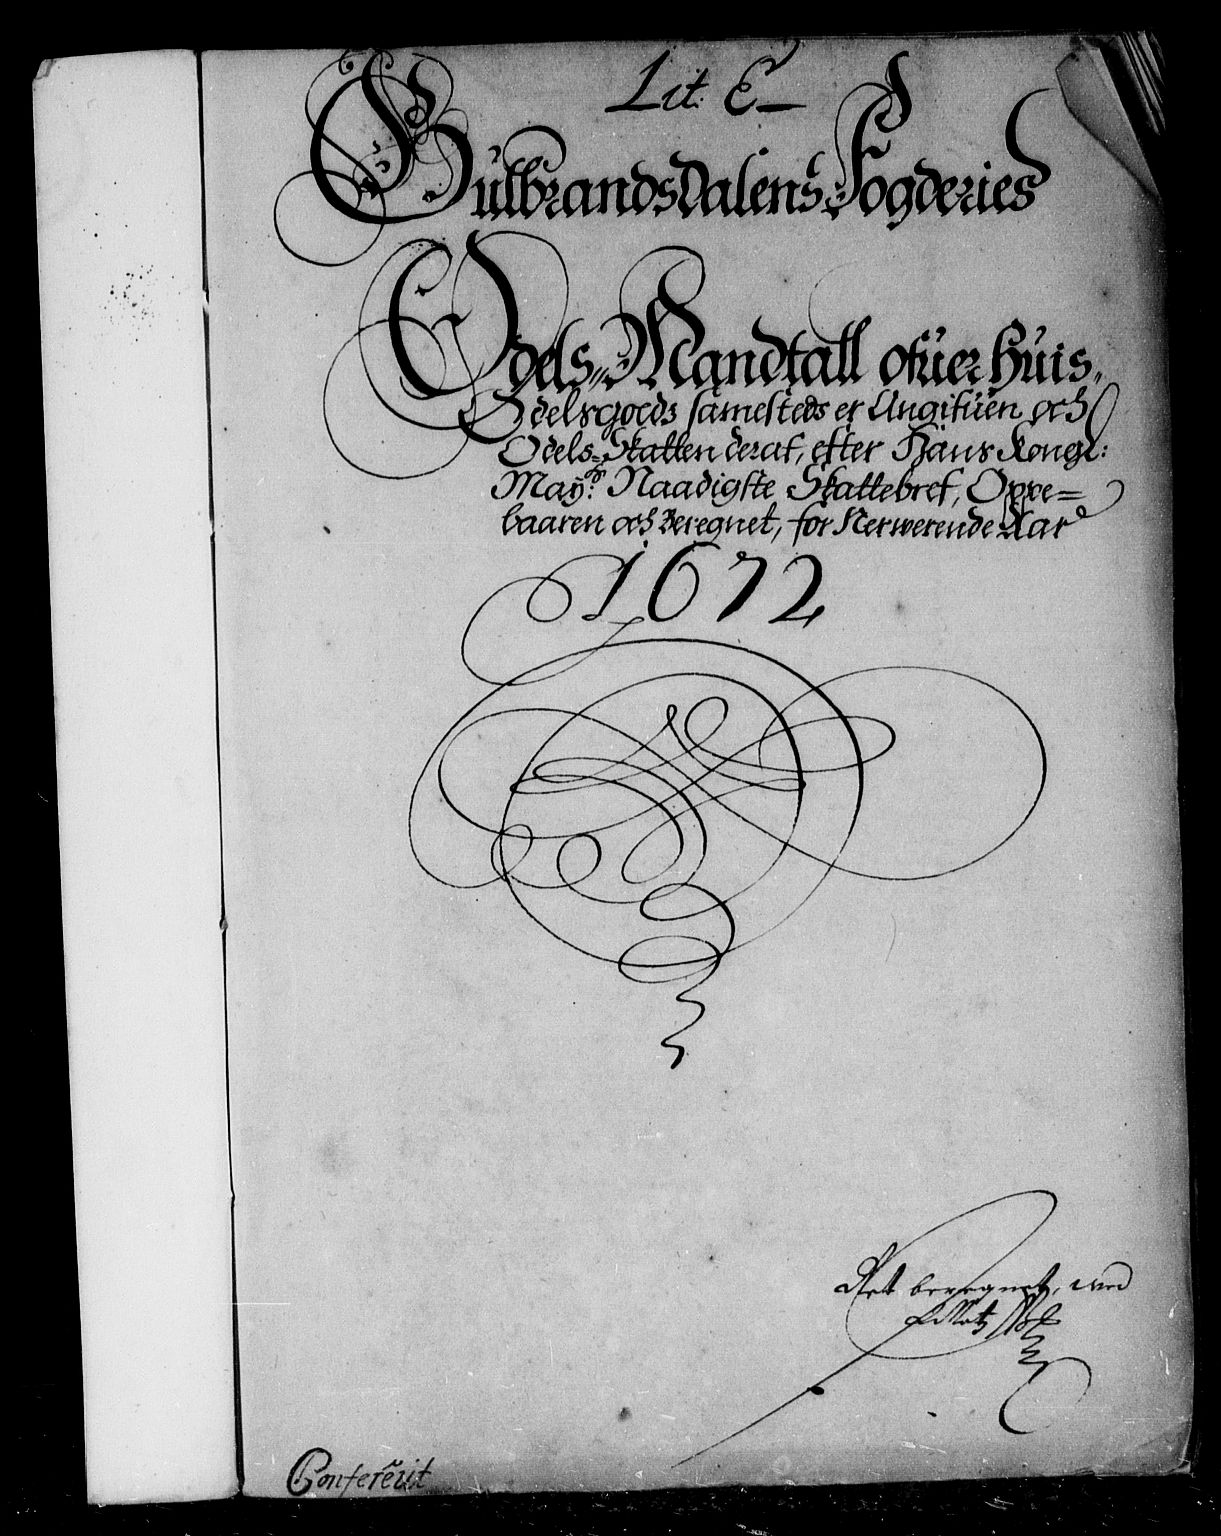 Lit: E
Gulbrandsdalens Fogderies
Odels Mandtall ofuer huis,
Odelsgoeds samesteds er Angifuen och
Odels=Skatten deraf, efter Hans Kongl:
Mayts: Naadigste Skattebref, Oppe=
baaren och Beregnet, for Nerwerende Aar
1672
Ret beregnet,
Confererit